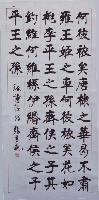 何彼秾矣唐棣之華曷不肅
雍王姬之車何彼秾矣花如
桃李平王之孫齊侯之子其
釣維何維絲伊緡齊侯之子
平王之孫